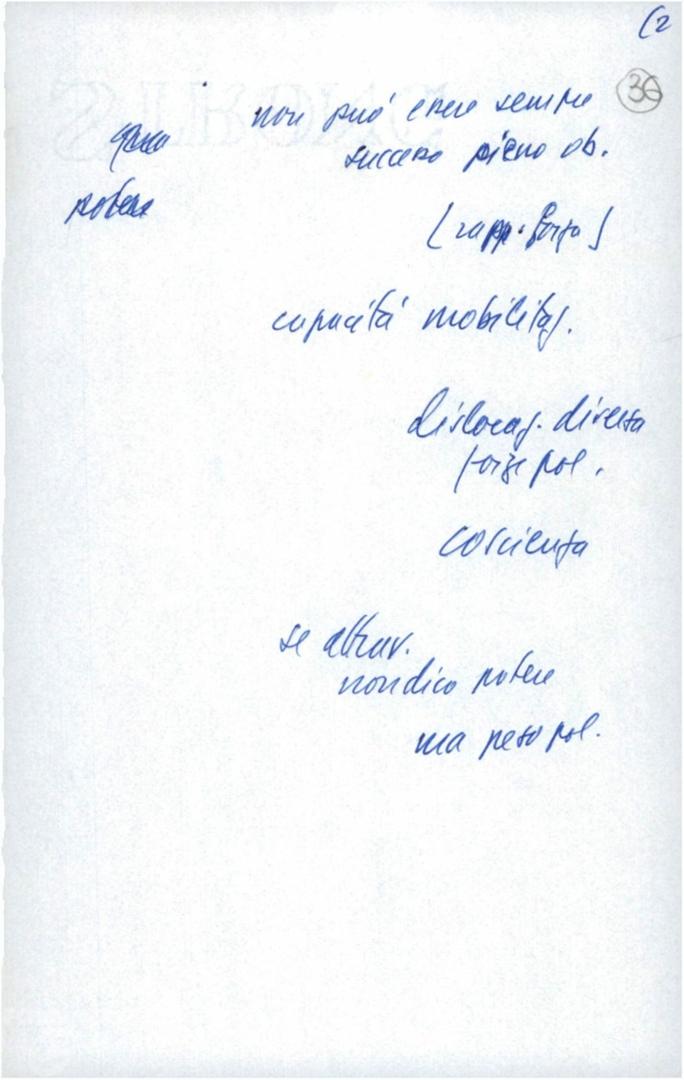 (2
36
non può essere sempre
successo pieno ob.
potere
(rapp. forza)
capacità mobilitaz.
dislocaz. diversa
forze pol.
coscienza
se attrav.
non dico potere
ma peso pol.